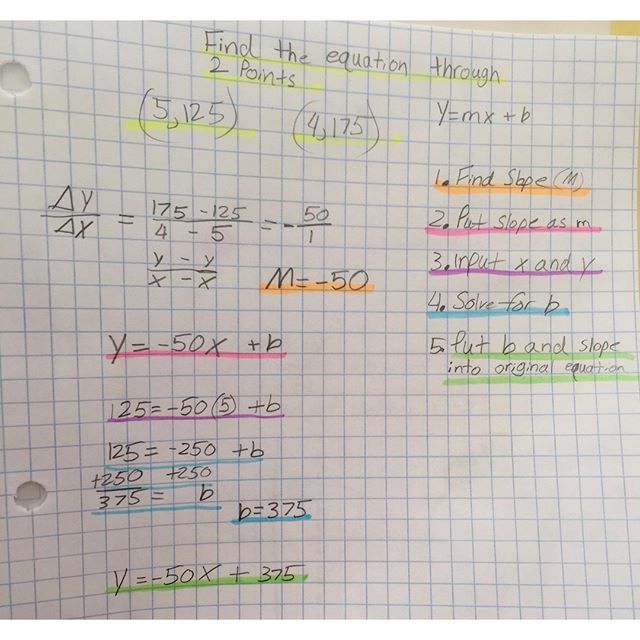 Find the equation through
2 Points
(5,125) (4,175)
y=mx+b
1. Find Slope (M)
2. Put slope as m
3. Input x and y
4. Solve for b
5. Put b and slope
into original equation
Δy/Δx = 175-125/4-5 = -50/1
y-y/x-x
M=-50
y=-50x+b
125=-50(5)+b
125=-250+b
+250 +250
375= b
b=375
y=-50x+375